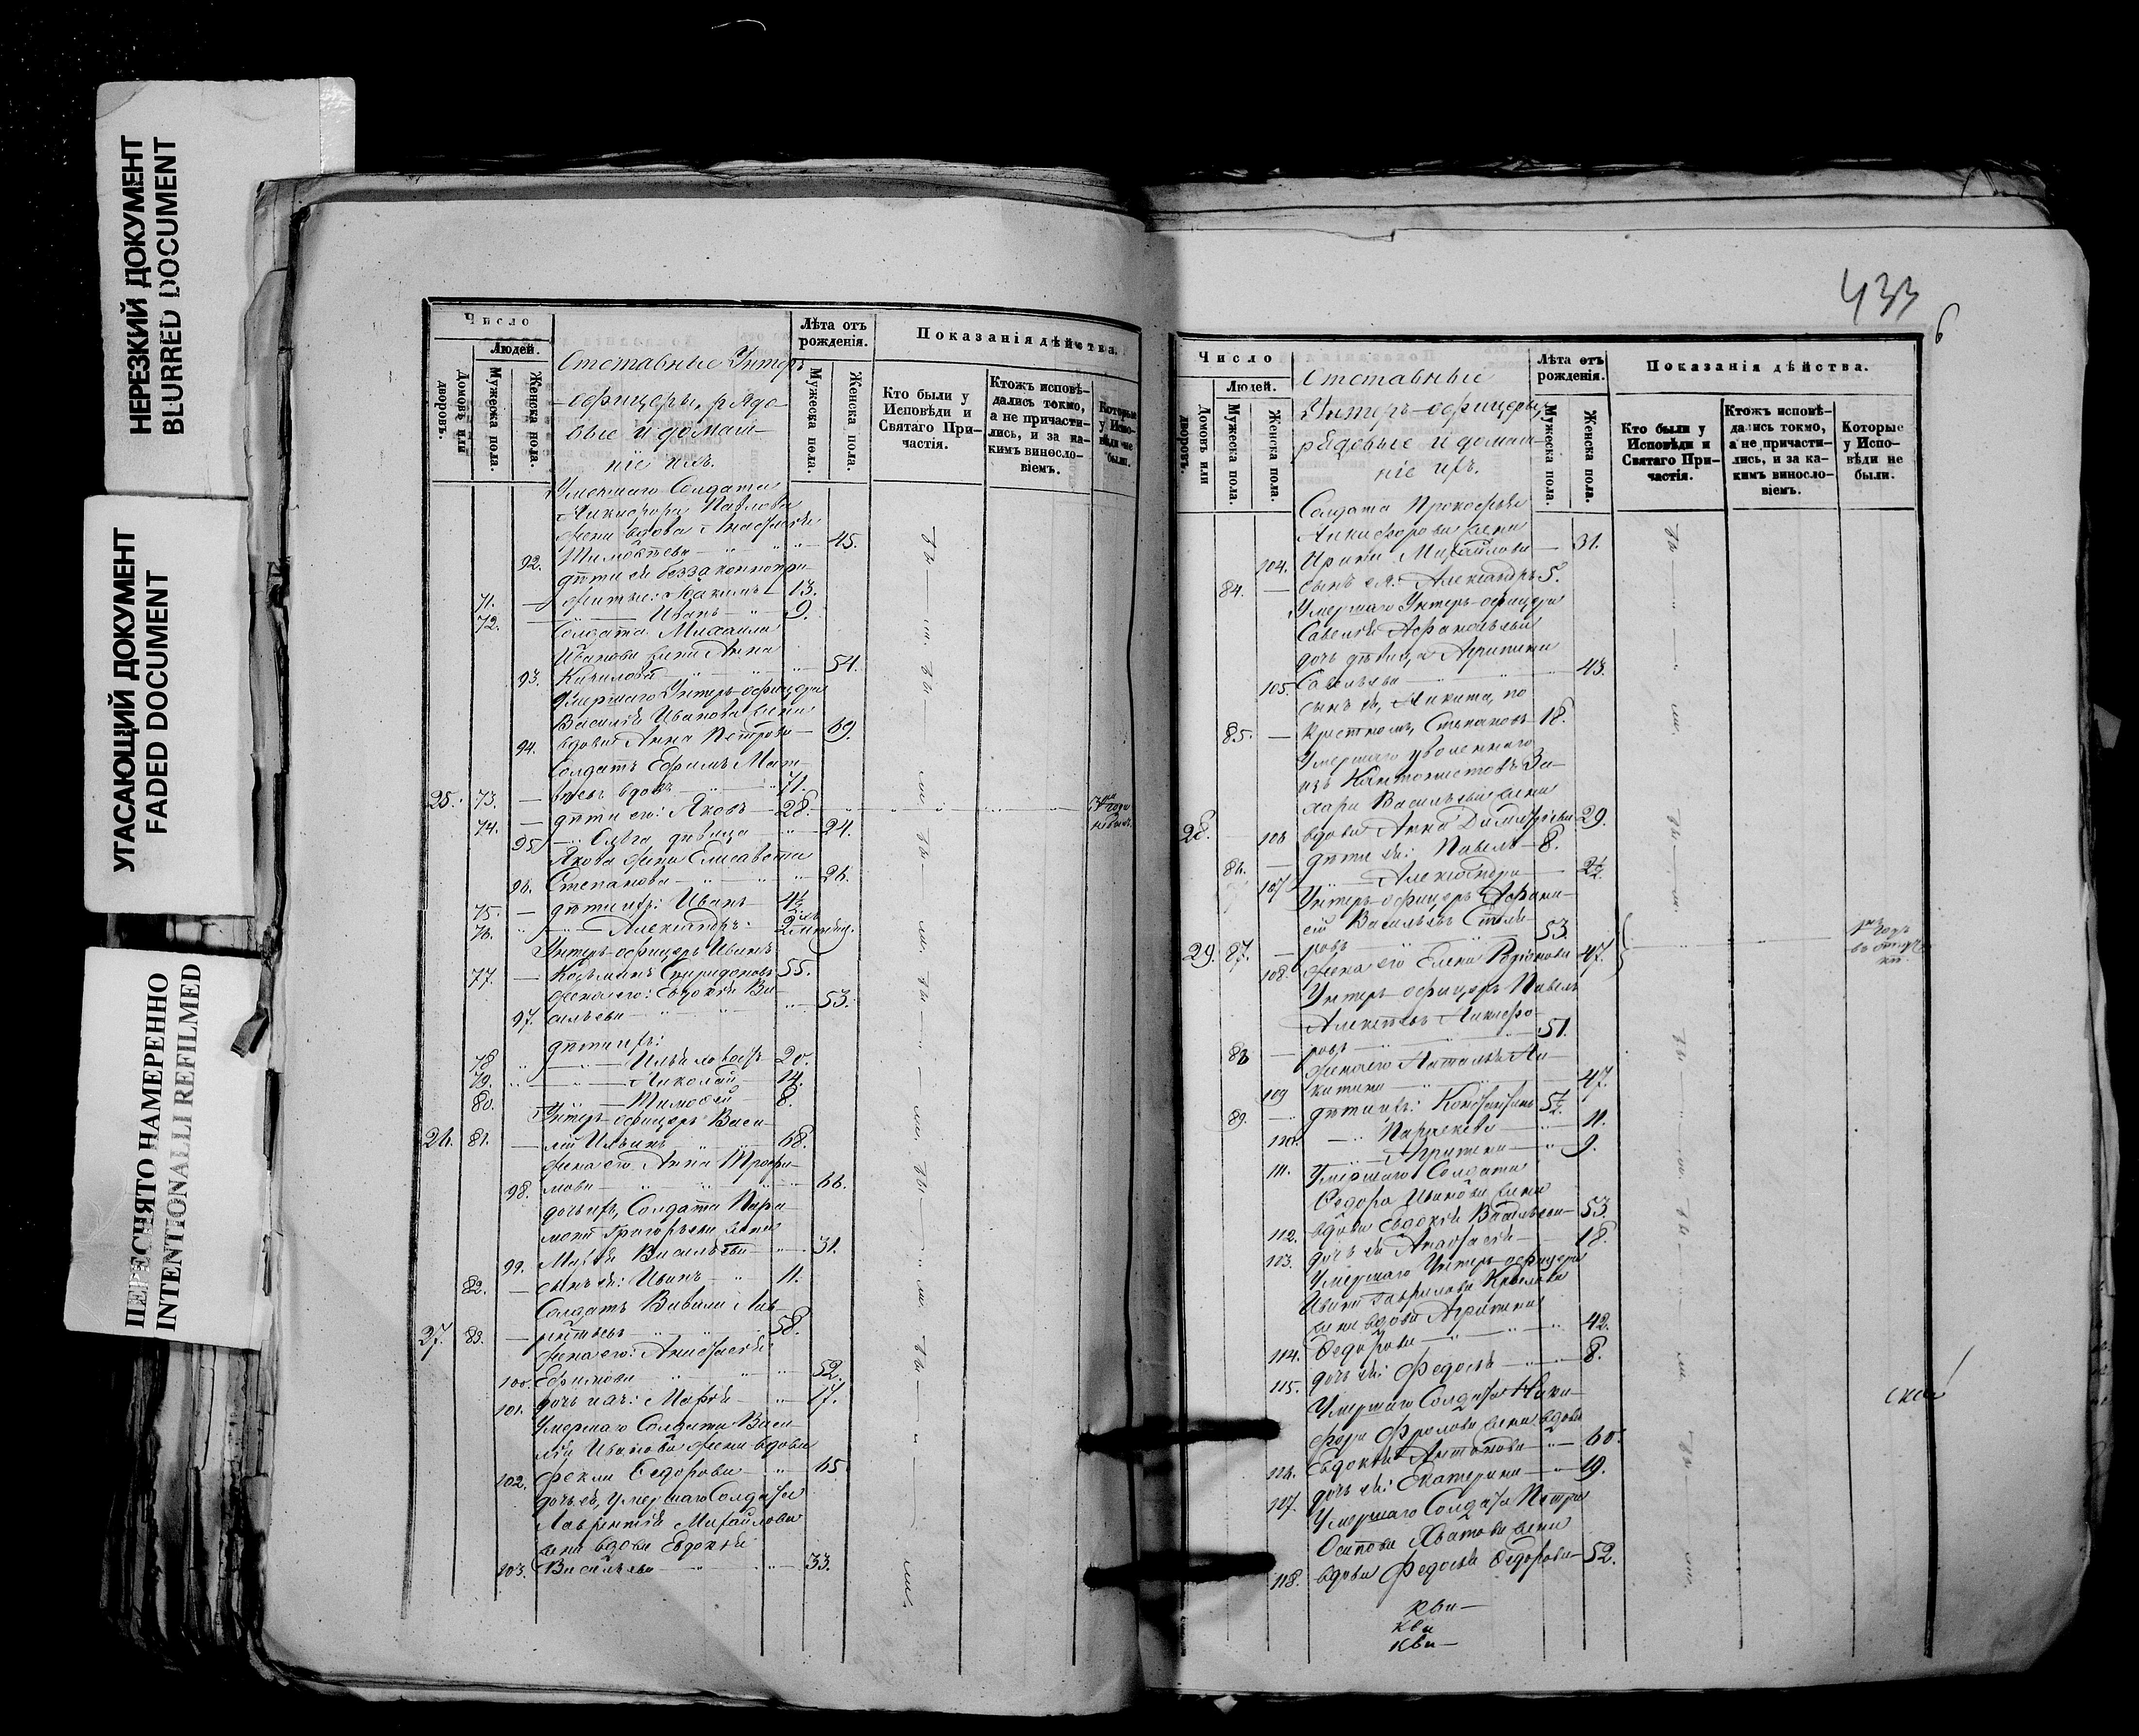 НЕРЕЗКИЙ ДОКУМЕНТ
BLURRED DOCUMENT
УГАСАЮЩИЙ ДОКУМЕНТ
FADED DOCUMENT
ПЕРЕСНЯТО НАМЕРЕННО
INTENTIONALLI REFILMED
Число
Людей.
Домовъ или дворовъ.
Мужеска пола.
Женска пола.
Отставные Унтеръ
офицеры, рядо-
вые и домаш-
ніе ихъ.
Лѣта отъ рожденія.
Мужеска пола.
Женска пола.
Показанія дѣйства.
Кто были у Исповѣди и Святаго При-частія.
Ктожъ исповѣ-дались токмо, а не причасти-лись, и за ка-кимъ винсло-віемъ.
Которые у Испо-вѣди не были.
Умершаго Солдата
Никифора Павлова
жена вдова Анастасія
92. Тимоѳеева 45.
дѣти ея беззаконнопри-
71. житые: Максимъ 13.
72. Иванъ 9.
Солдата Михаила
Иванова жена Анна
93. Кирилова 54.
Умершаго Унтеръ-офицера
Василія Иванова жена
94. вдова Анна Петрова 69.
Солдатъ Ефимъ Мат-
25. 73. вѣевъ вдовъ 71.
74. дѣти его: Яковъ 28.
95. Ольга дѣвица 24.
Якова жена Елисавета
96. Степанова 26.
75. дѣти ихъ: Иванъ 4½
76. Александръ 2
Унтеръ-офицеръ Иванъ
77. Козьминъ Спиридоновъ 55.
жена его: Евдокія Ва-
97. сильева 53.
дѣти ихъ:
78 20.
79. Николай 14.
80. Тимоѳей 8.
Унтеръ-офицеръ Васи-
26. 81. лій Ильинъ 68.
жена его Анна Трофи-
98. мова 66.
дочь ихъ, Солдата Пара-
мона Григорьева жена
99. Марѳа Васильева 31.
82. сынъ ея: Иванъ 11.
Солдатъ Вавила Лав-
27. 83. рентьевъ 58.
жена его: Анастасія
100. Ефимова 52.
101. дочь ихъ: Марѳа 17.
Умершаго Солдата Васи-
лія Иванова жена вдова
102. Ѳекла Ѳедорова 65
дочь ея, умершаго Солдата
Лаврентія Михайлова
жена вдова Евдокія
103. Васильева 33.
433
6
Число
Людей.
Домовъ или дворовъ.
Мужеска пола.
Женска пола.
Отставные
Унтеръ-офицеры,
рядовые и домаш-
ніе ихъ.
Лѣта отъ рожденія.
Мужеска пола.
Женска пола.
Показанія дѣйства.
Кто были у Исповѣди и Святаго При-частія.
Ктожъ исповѣ-дались токмо, а не причасти-лись, и за ка-кимъ винсло-віемъ.
Которые у Испо-вѣди не были.
Солдата Прокофія
Никифорова жена
104. Ирина Михайлова 31.
84. сынъ ея: Александръ 5.
Умершаго Унтеръ-офицера
Савелія Афанасьева
дочь дѣвица Агрипена
105. Савельева 43.
сынъ ея, Никита, по
85. крестномъ, Степановъ 18.
Умершаго уволеннаго
изъ Кантонистовъ За-
хара Васильева жена
28. 106 вдова Анна Димитріева 29.
86. дѣти ея: Павелъ 8.
107 Александра 2½
Унтеръ-офицеръ Афана-
сій Васильевъ
29. 87. 53.
108. жена его Елена 47.
Унтеръ-офицеръ Павелъ
Алексѣевъ Никифо-
88 ровъ 51.
жена его Наталья Ни-
109 китина 47.
89. дѣти ихъ: Константинъ 5½
110. Параскева 11.
111. Агрипена 9.
Умершаго Солдата
Ѳедора Иванова жена
112. вдова Евдокія Васильева 53.
103. дочь ея Анастасія 18.
Умершаго Унтеръ-офицера
Ивана Гаврилова
жена вдова Агрипена
114. Ѳедорова 42.
115. дочь ея: Ѳедосья 8.
Умершаго Солдата Ники-
фора Фролова жена вдова
116. Евдокія Антонова 60.
107. дочь ея: Екатерина 19.
Умершаго Солдата Петра
Осипова жена
118. вдова Ѳедосья Ѳедорова 52.